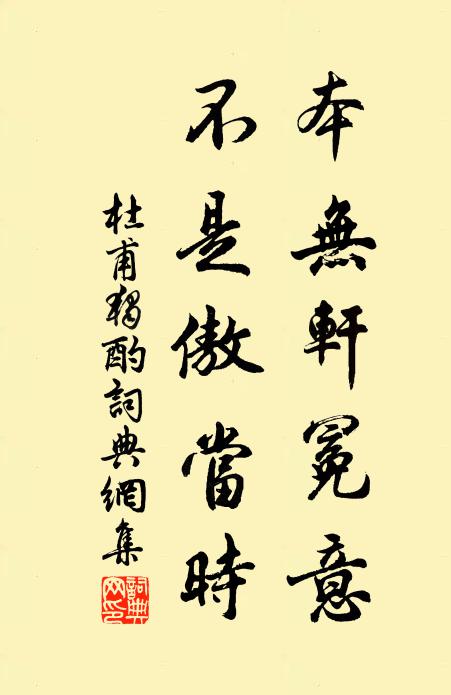 本無軒冕意
不是傲當時
杜甫獨酌詞典網集